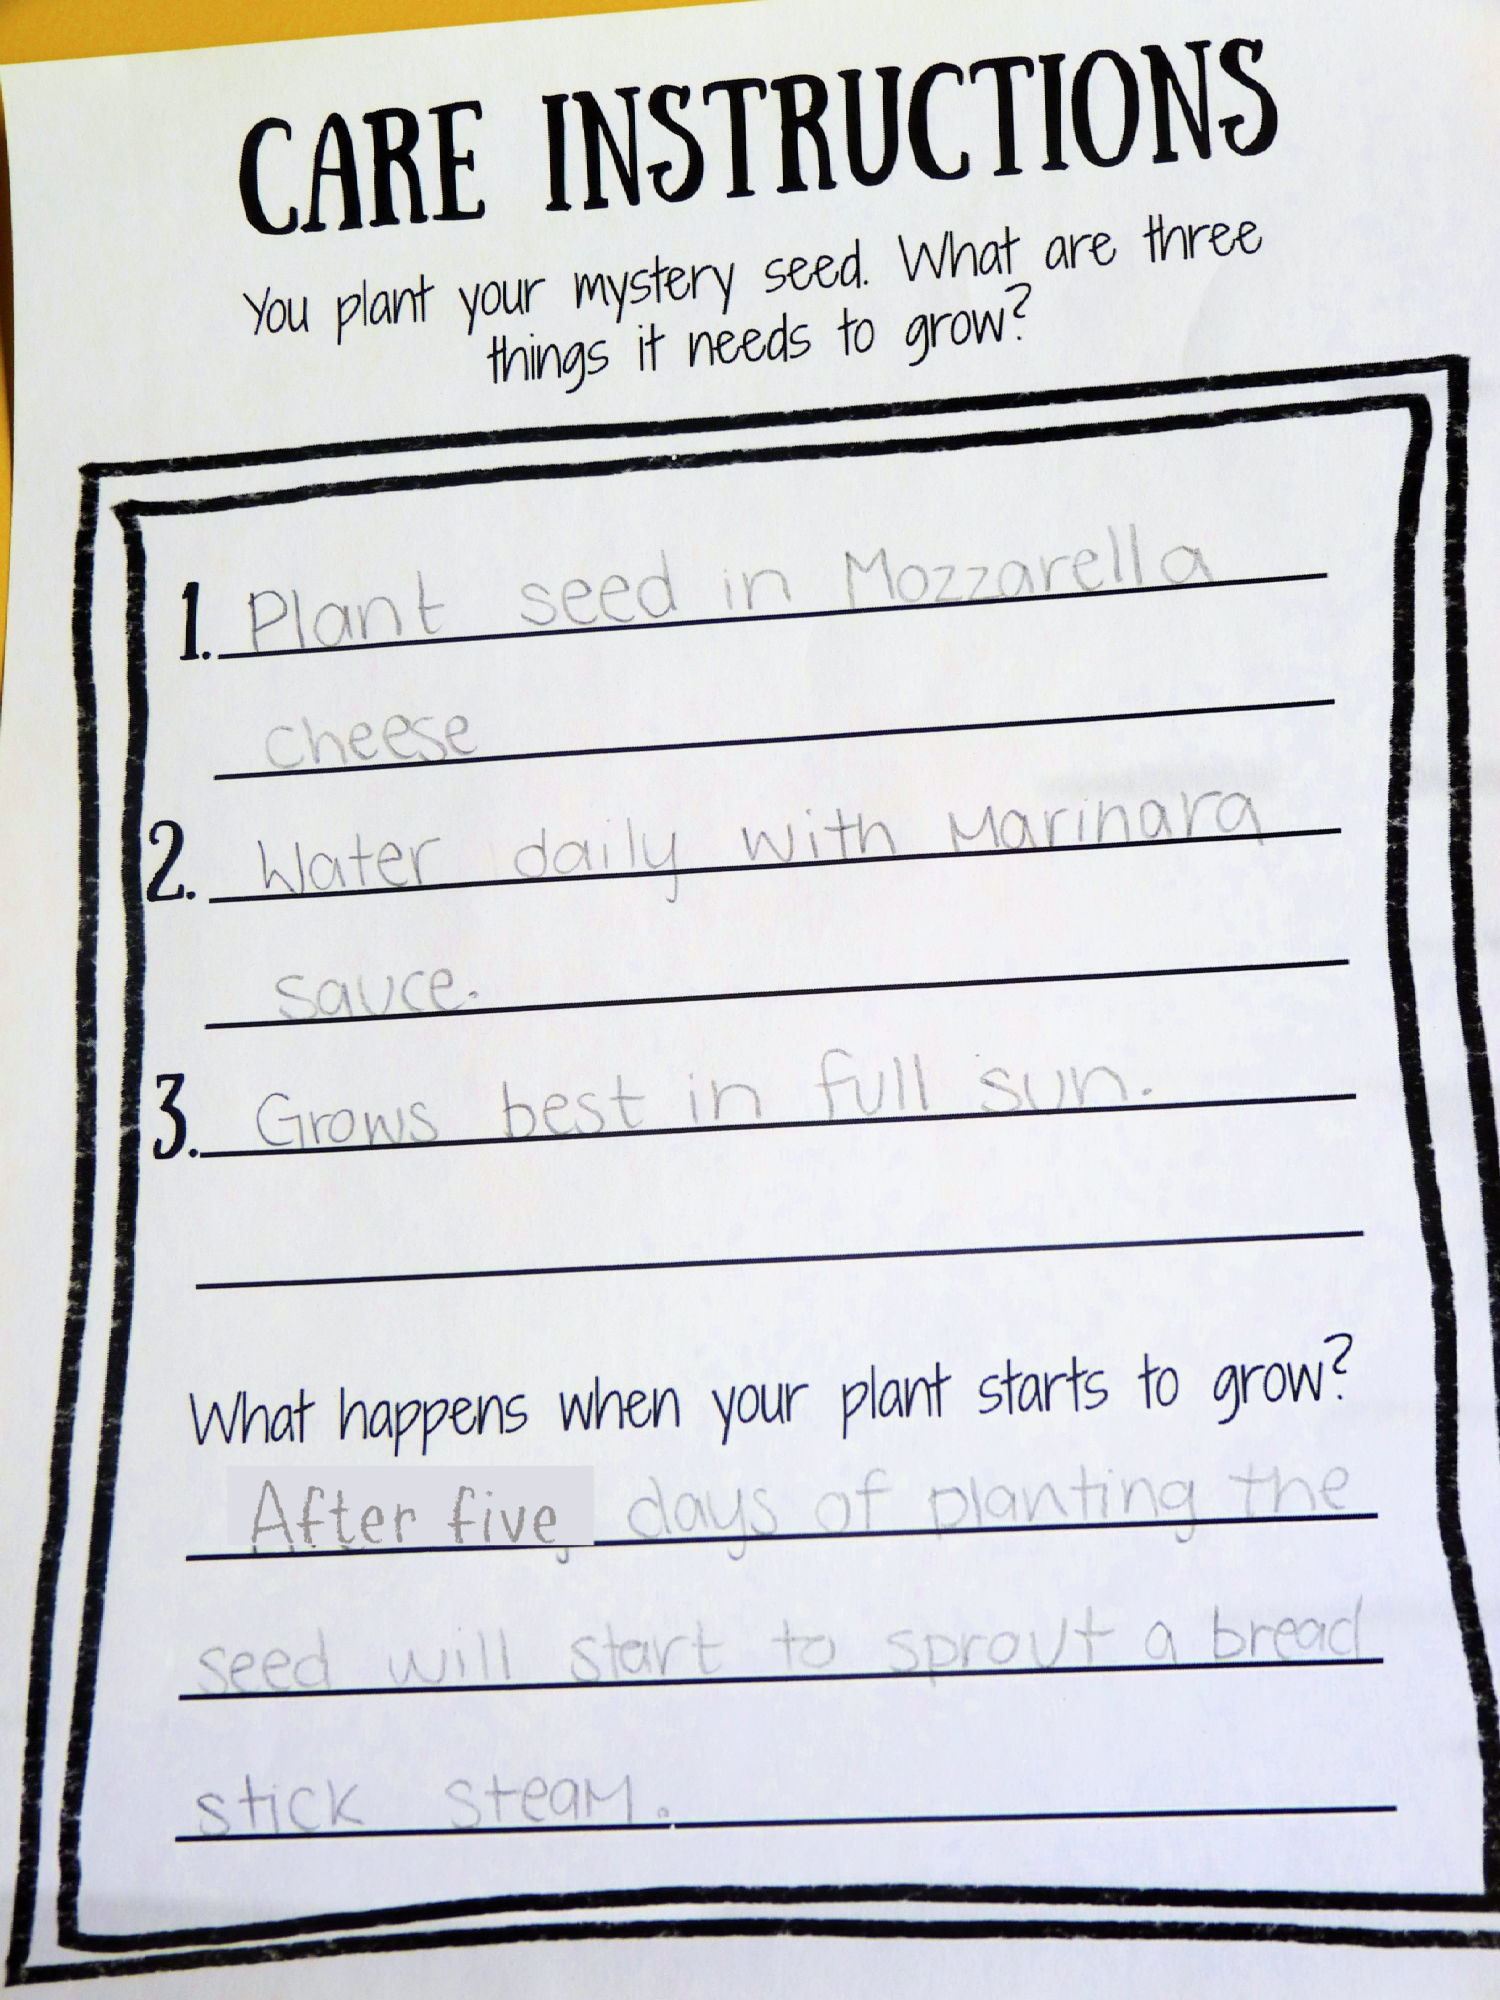 CARE INSTRUCTIONS
You plant your mystery seed. What are three
things it needs to grow?
1. Plant seed in Mozzarella
cheese
2. Water daily with Marinara
sauce.
3. Grows best in full sun.
What happens when your plant starts to grow?
After five days of planting the
seed will start to sprout a bread
stick steam.